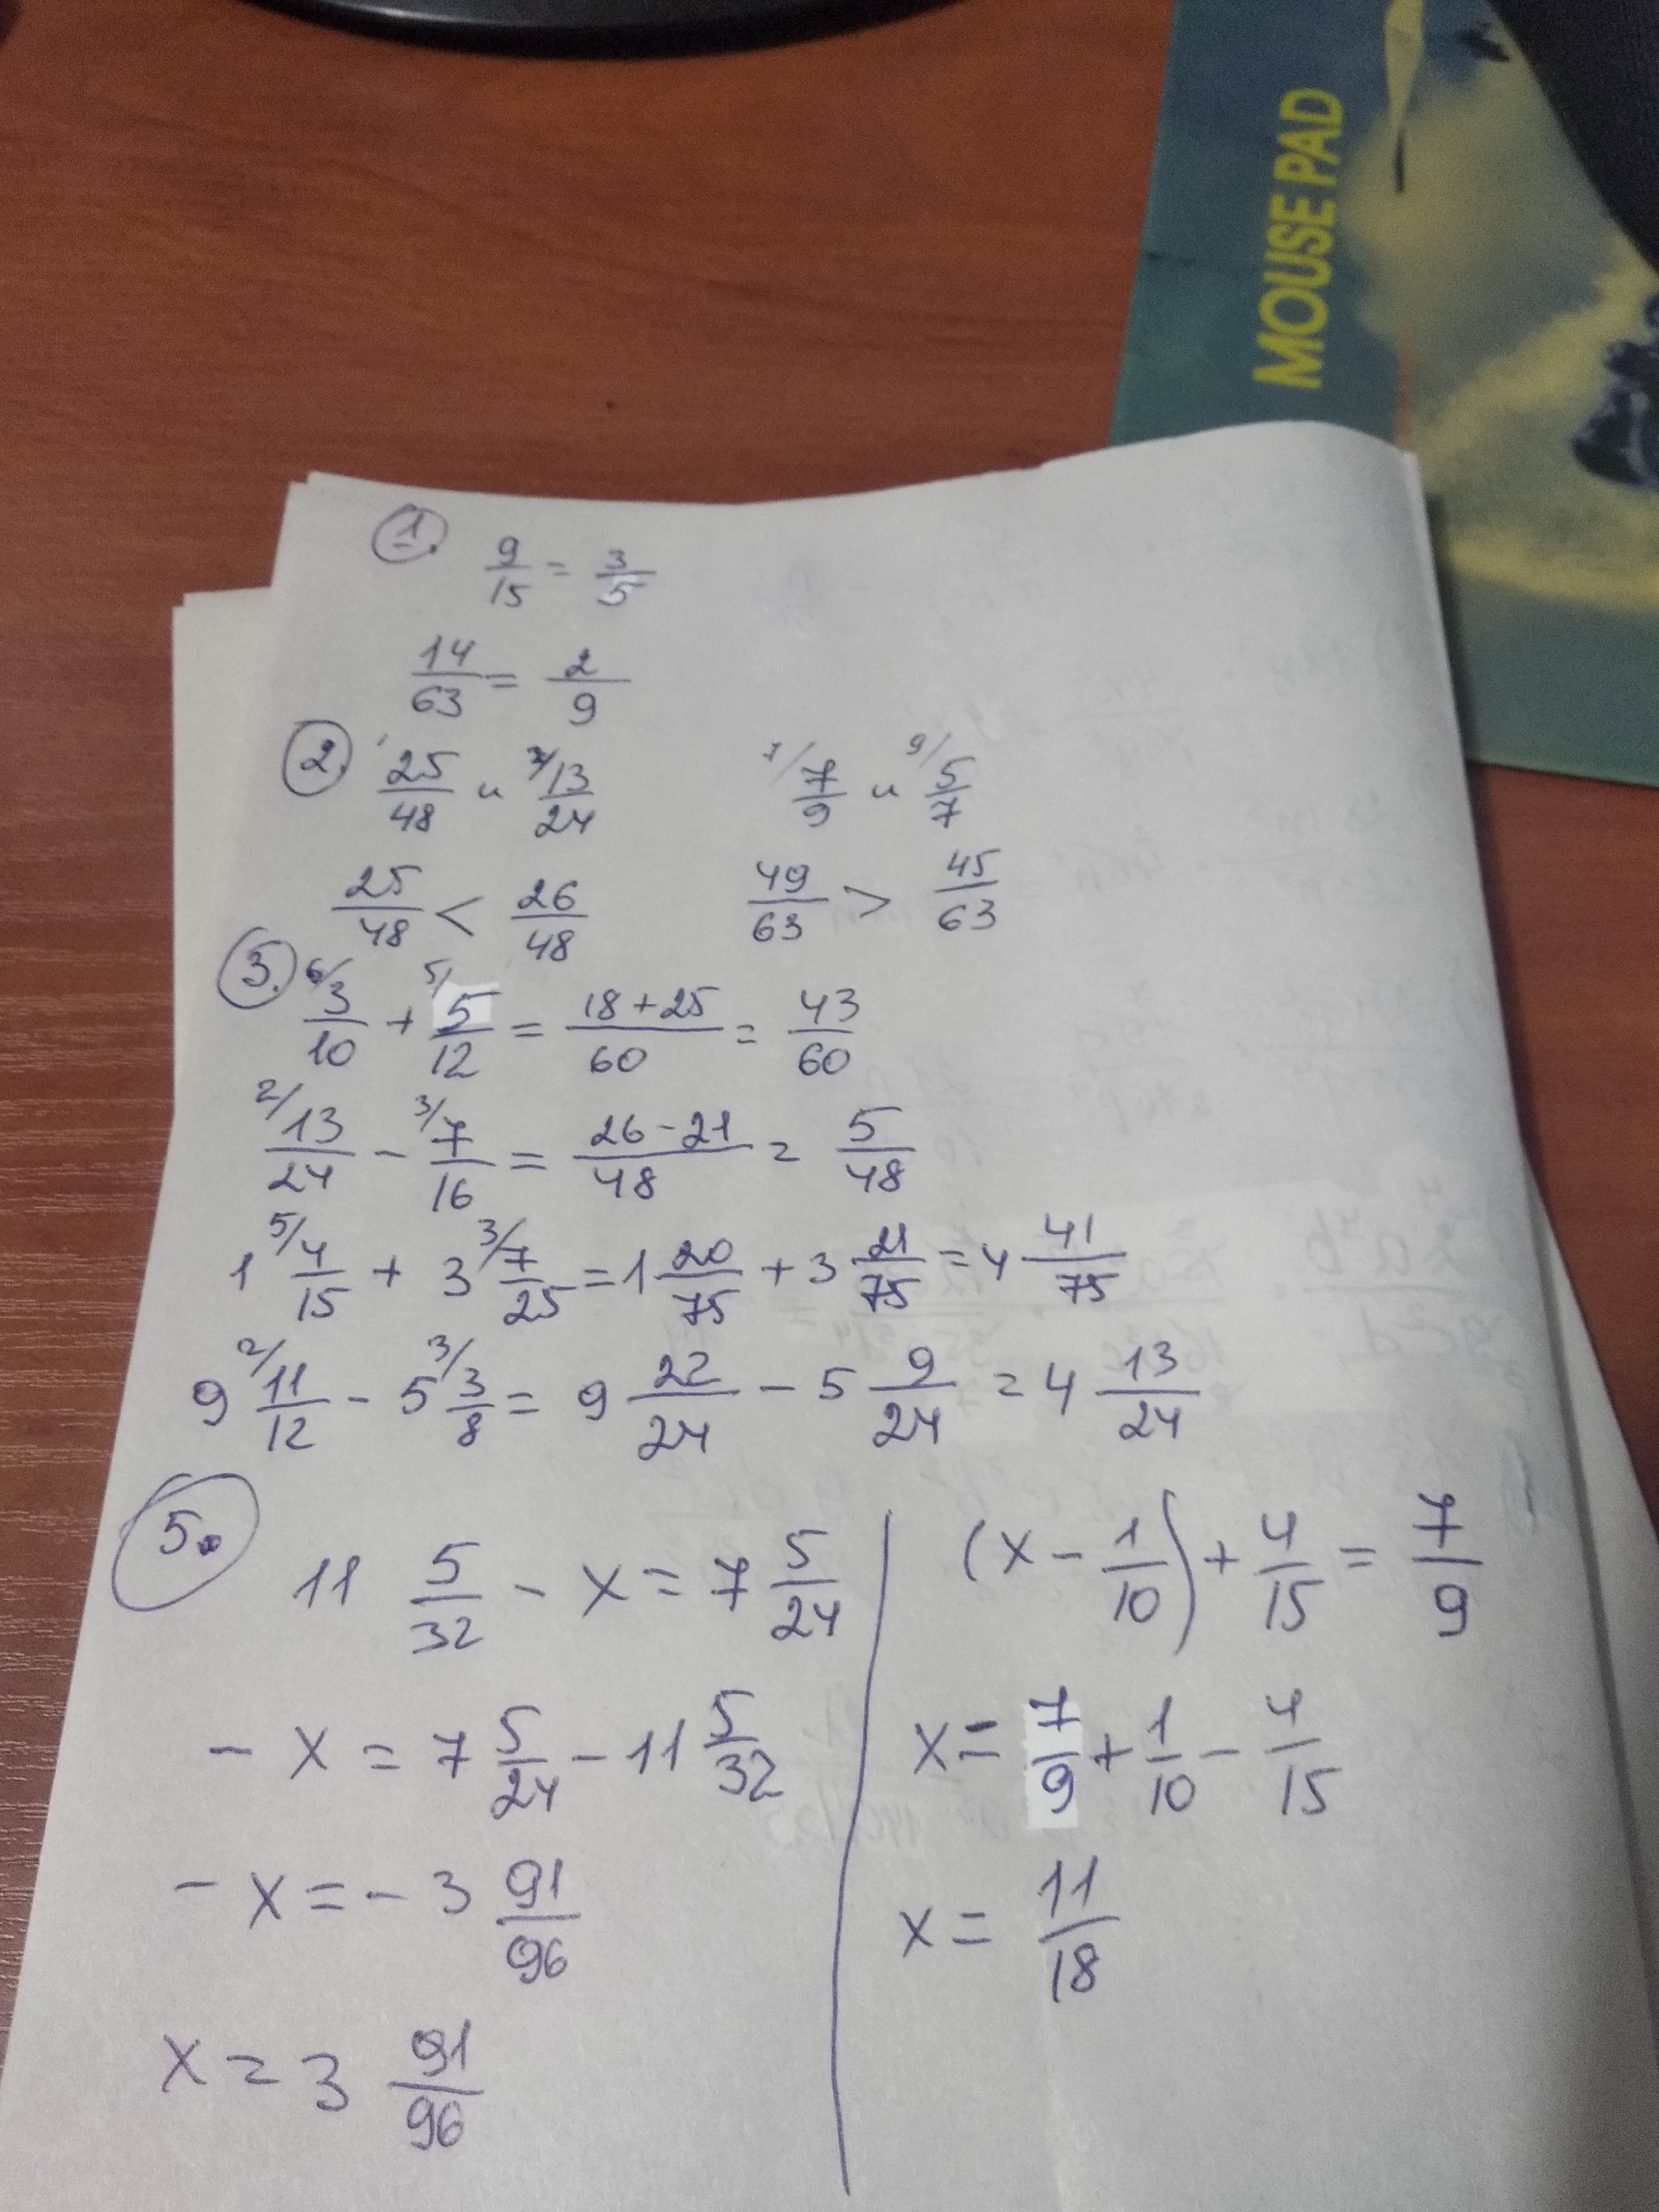 MOUSE PAD
1.
9/15 = 3/5
14/63 = 2/9
2. 25/48 и 2/ 13/24    7/ 7/9 и 9/ 5/7
25/48 < 26/48    49/63 > 45/63
3. 6/ 3/10 + 5/ 5/12 = (18+25)/60 = 43/60
2/ 13/24 - 3/ 7/16 = (26-21)/48 = 5/48
1 5/ 4/15 + 3 3/ 7/25 = 1 20/75 + 3 21/75 = 4 41/75
9 2/ 11/12 - 5 3/ 3/8 = 9 22/24 - 5 9/24 = 4 13/24
5.
11 5/32 - x = 7 5/24
- x = 7 5/24 - 11 5/32
- x = - 3 91/96
x = 3 91/96
(x - 1/10) + 4/15 = 7/9
x = 7/9 + 1/10 - 4/15
x = 11/18